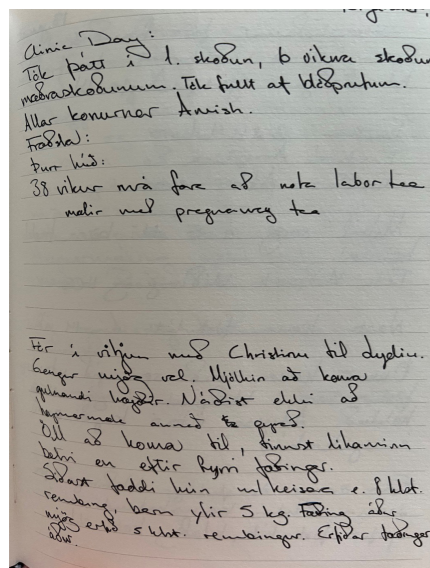 Clinic Day:
Tók þátt í 1. skoðun, 6 vikna skoðun
mæðraskoðunum. Tók fullt af blóðprufum.
Allar konurnar Amish.
Fræðsla:
Þurr húð:
38 vikur má fara að nota labor tea
mælir með pregnancy tea
Fór í vitjun með Christinu til Lydiu.
Gengur mjög vel. Mjólkin að koma
hægðir. Náðist ekki að
annað
Öll að koma til, finnst líkaminn
betri en eftir fyrri fæðingar.
Síðast fæddi hún m/keisara e. 8 klst.
rembing, barn yfir 5 kg. Fæðing áður
mjög erfið 5 klst. rembingur. Erfiðar fæðingar
áður.